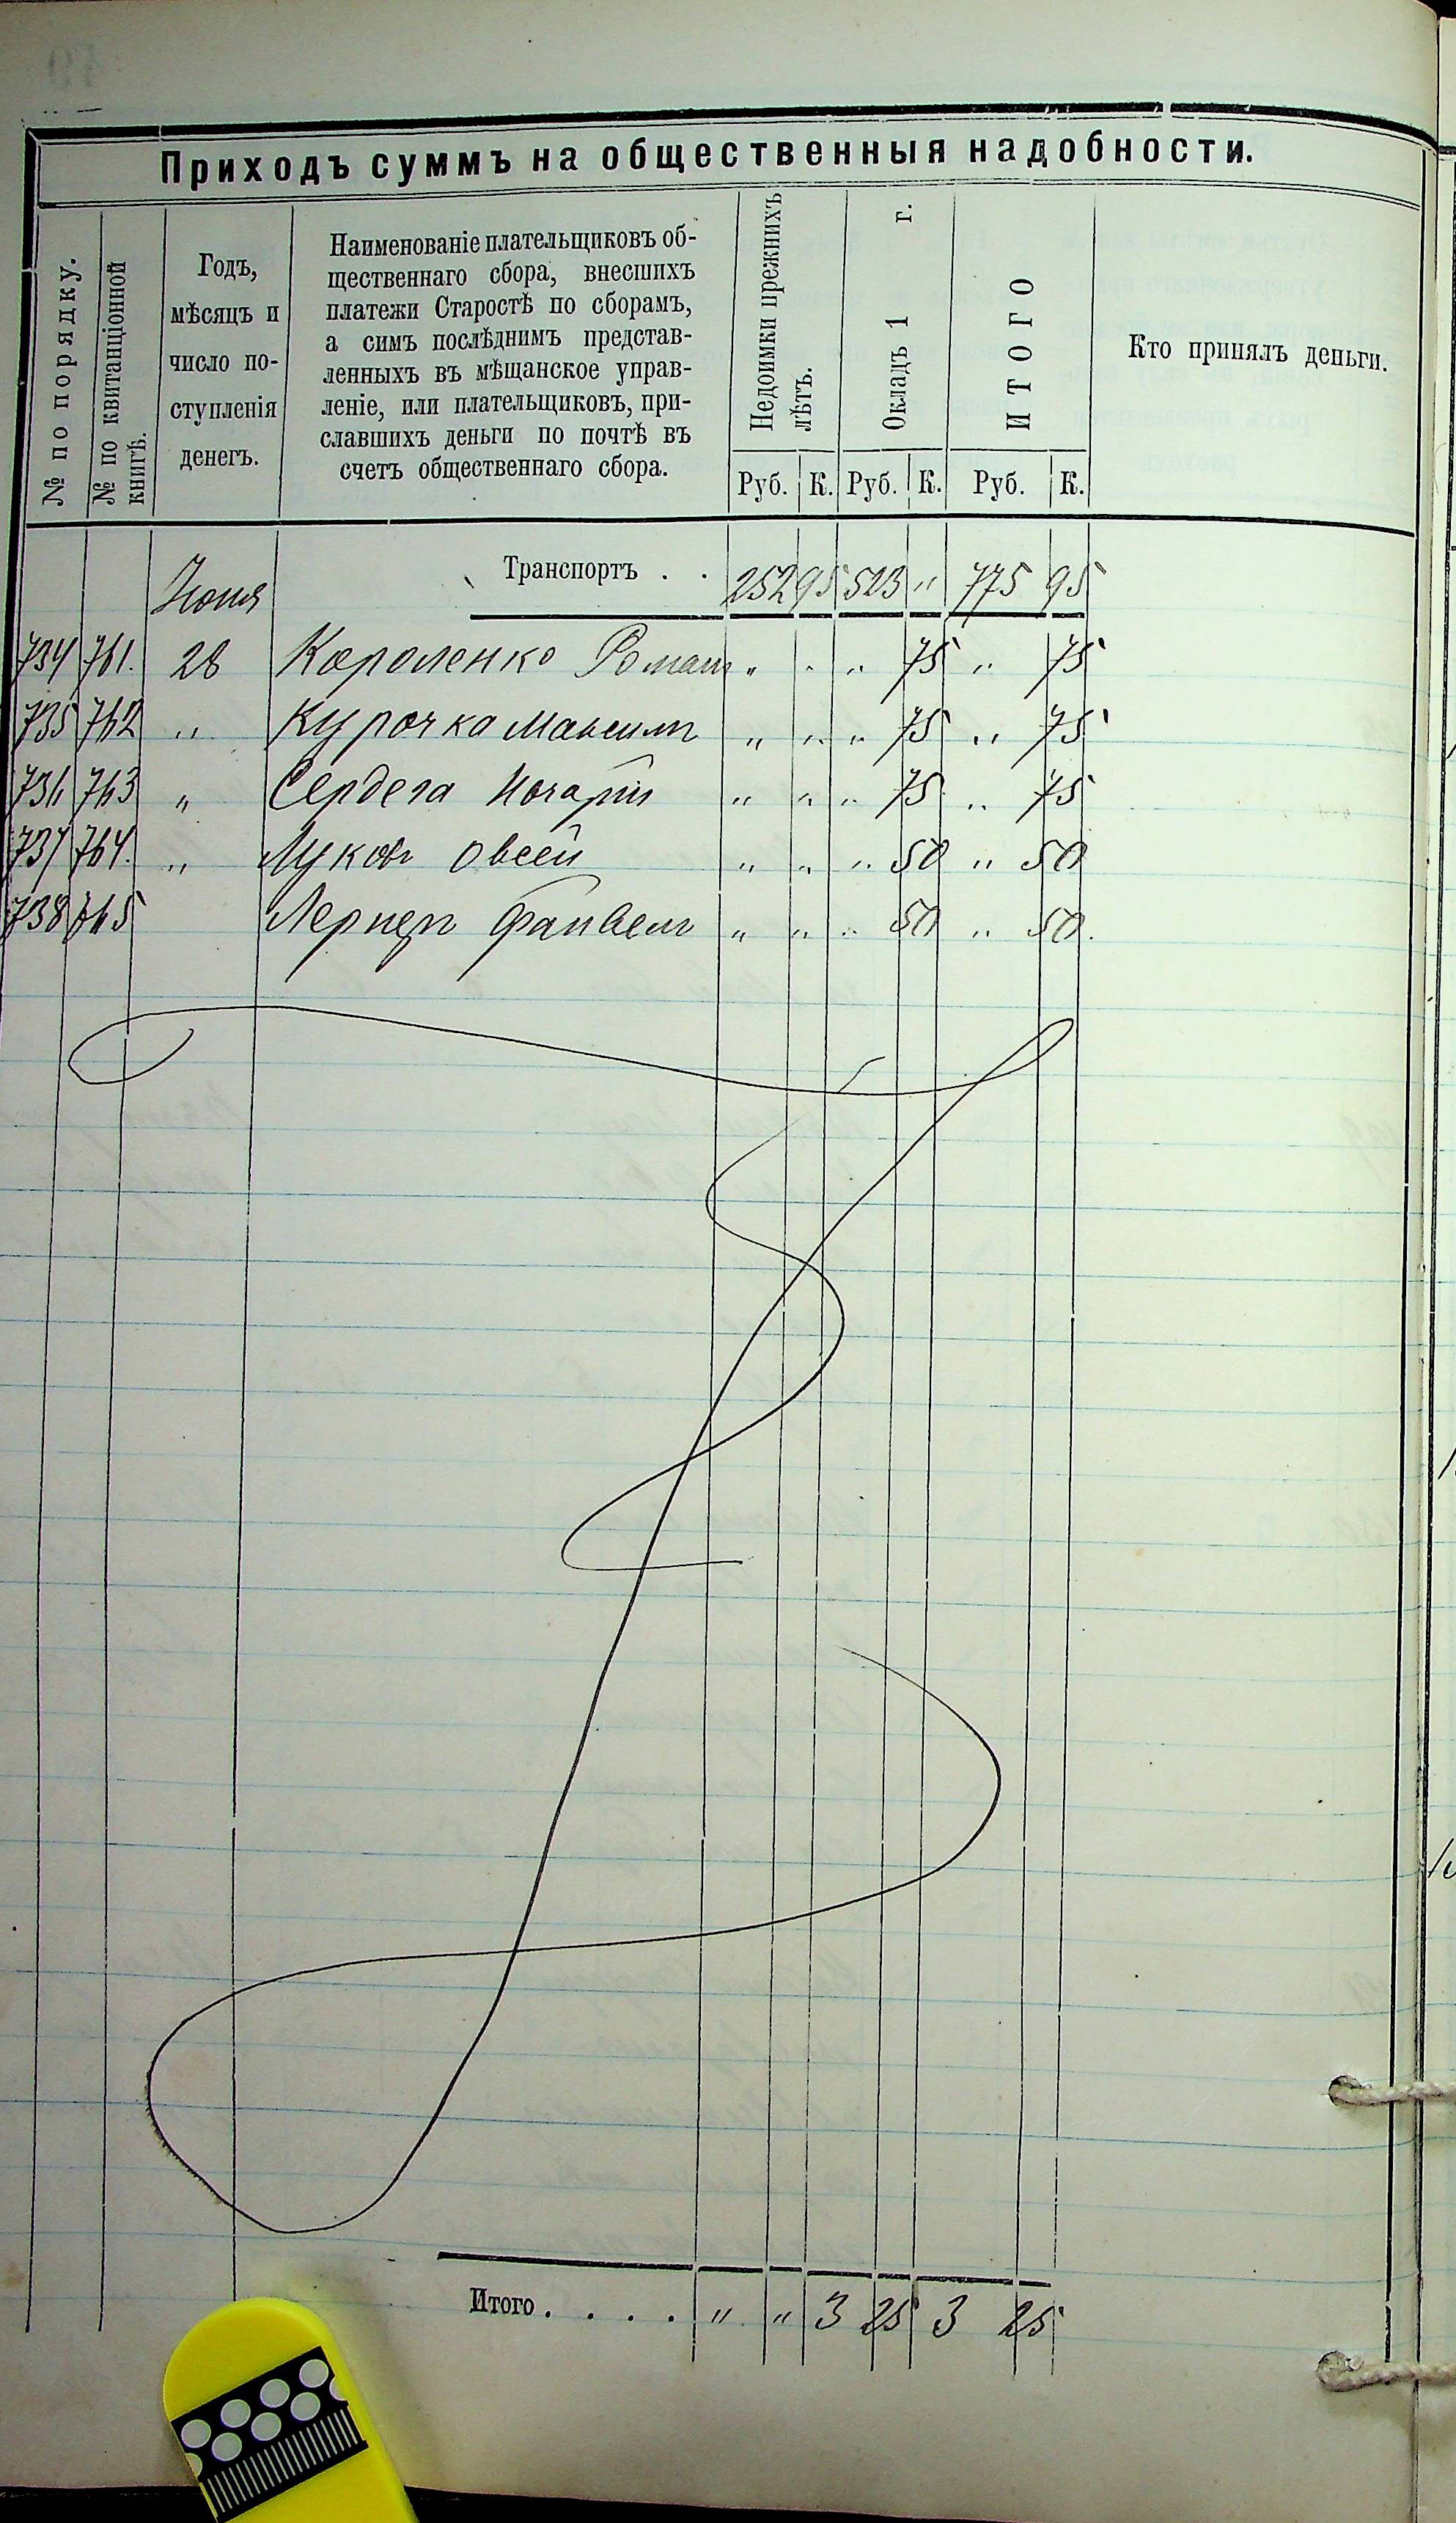 Приходъ суммъ на общественныя надобности.
№ по порядку.
№ по квитанціонной
книгѣ.
Годъ,
мѣсяцъ и
число по-
ступленія
денегъ.
Наименованіе плательщиковъ об-
щественнаго сбора, внесшихъ
платежи Старостѣ по сборамъ,
а симъ послѣднимъ представ-
ленныхъ въ мѣщанское управ-
леніе, или плательщиковъ, при-
славшихъ деньги по почтѣ въ
счетъ общественнаго сбора.
Недоимки прежнихъ
лѣтъ.
Окладъ 1 г.
ИТОГО
Кто принялъ деньги.
Руб. К. Руб. К. Руб. К.
Іюня Транспортъ . . 252 95 523 " 775 95
734 761. 28 Короленко Романъ " " " 75 " 75
735 762 " Курочка Максимъ " " " 75 " 75
736 763 " Сердега " " " 75 " 75
737 764. " Луковъ Овсей " " " 50 " 50
738 765 Лернеръ Файвель " " " 50 " 50.
Итого . . . . " " 3 25 3 25